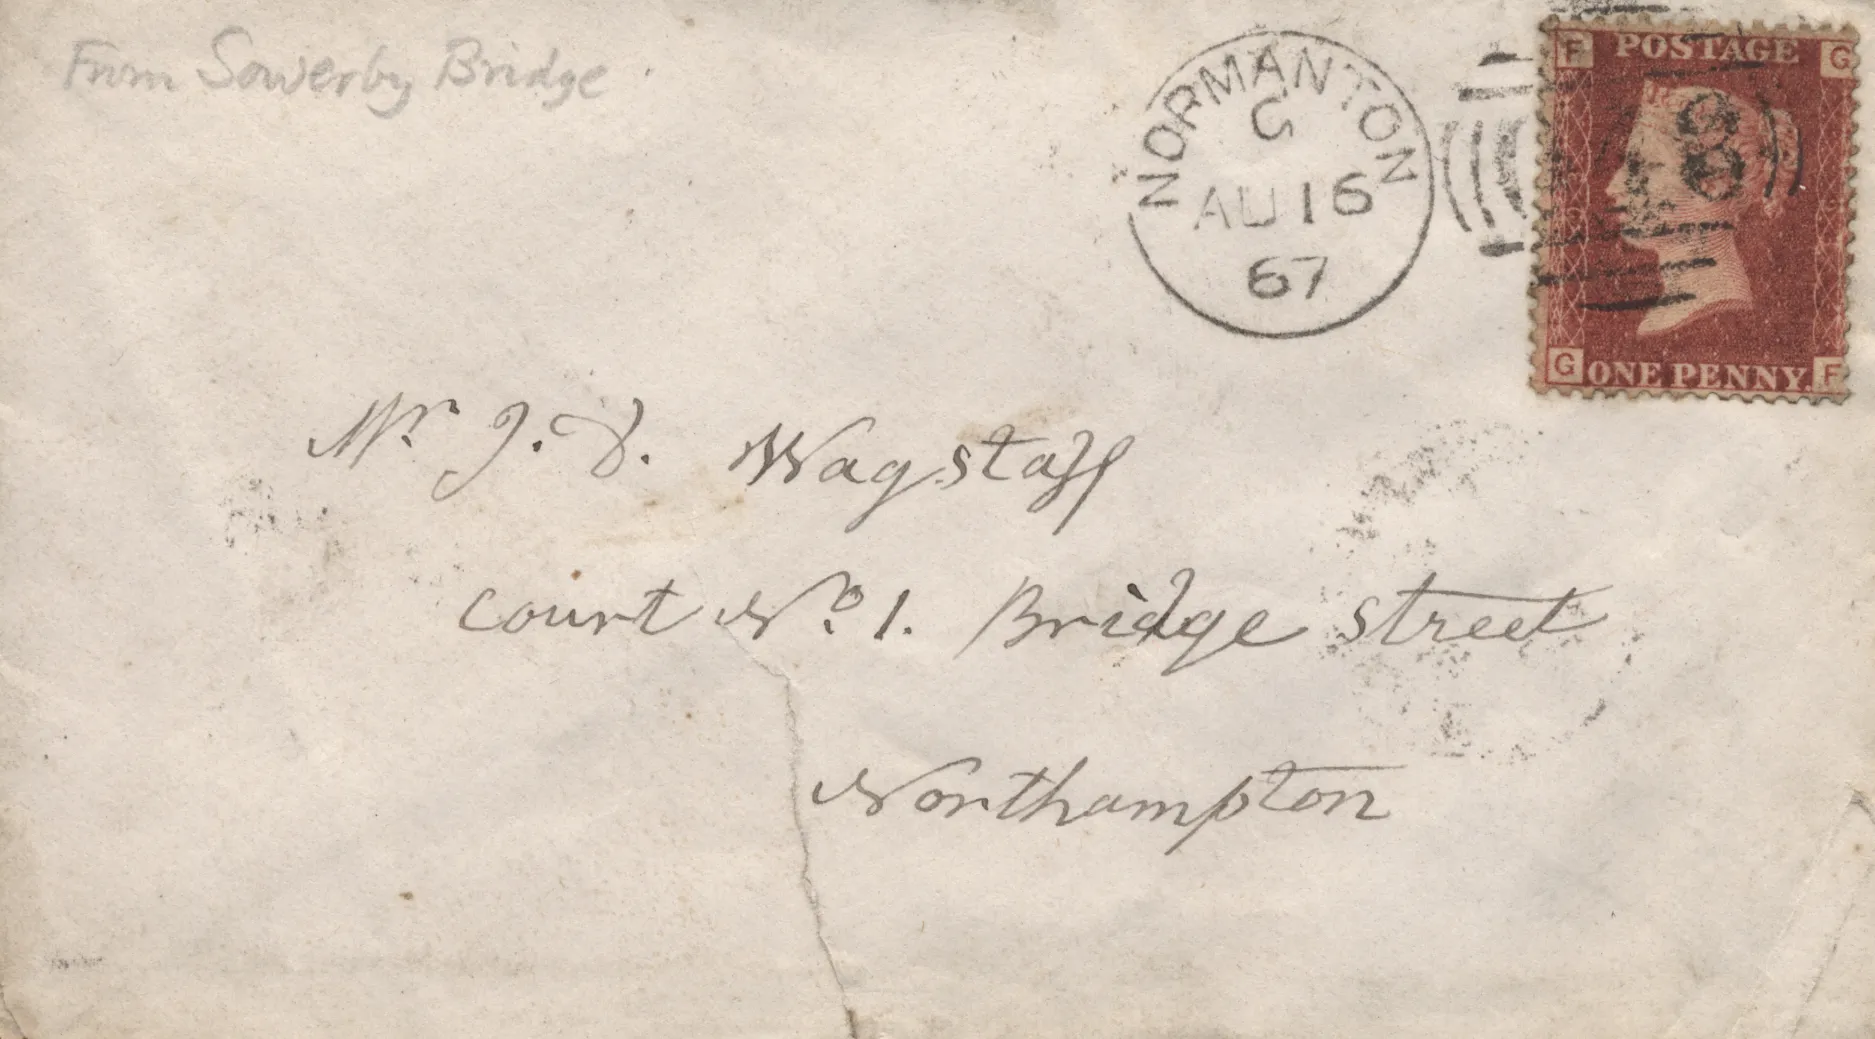 From Sowerby Bridge
NORMANTON
G
AU 16
67
F POSTAGE G
G ONE PENNY. F
Mr. J. D. Wagstaff
Court No. 1. Bridge Street
Northampton